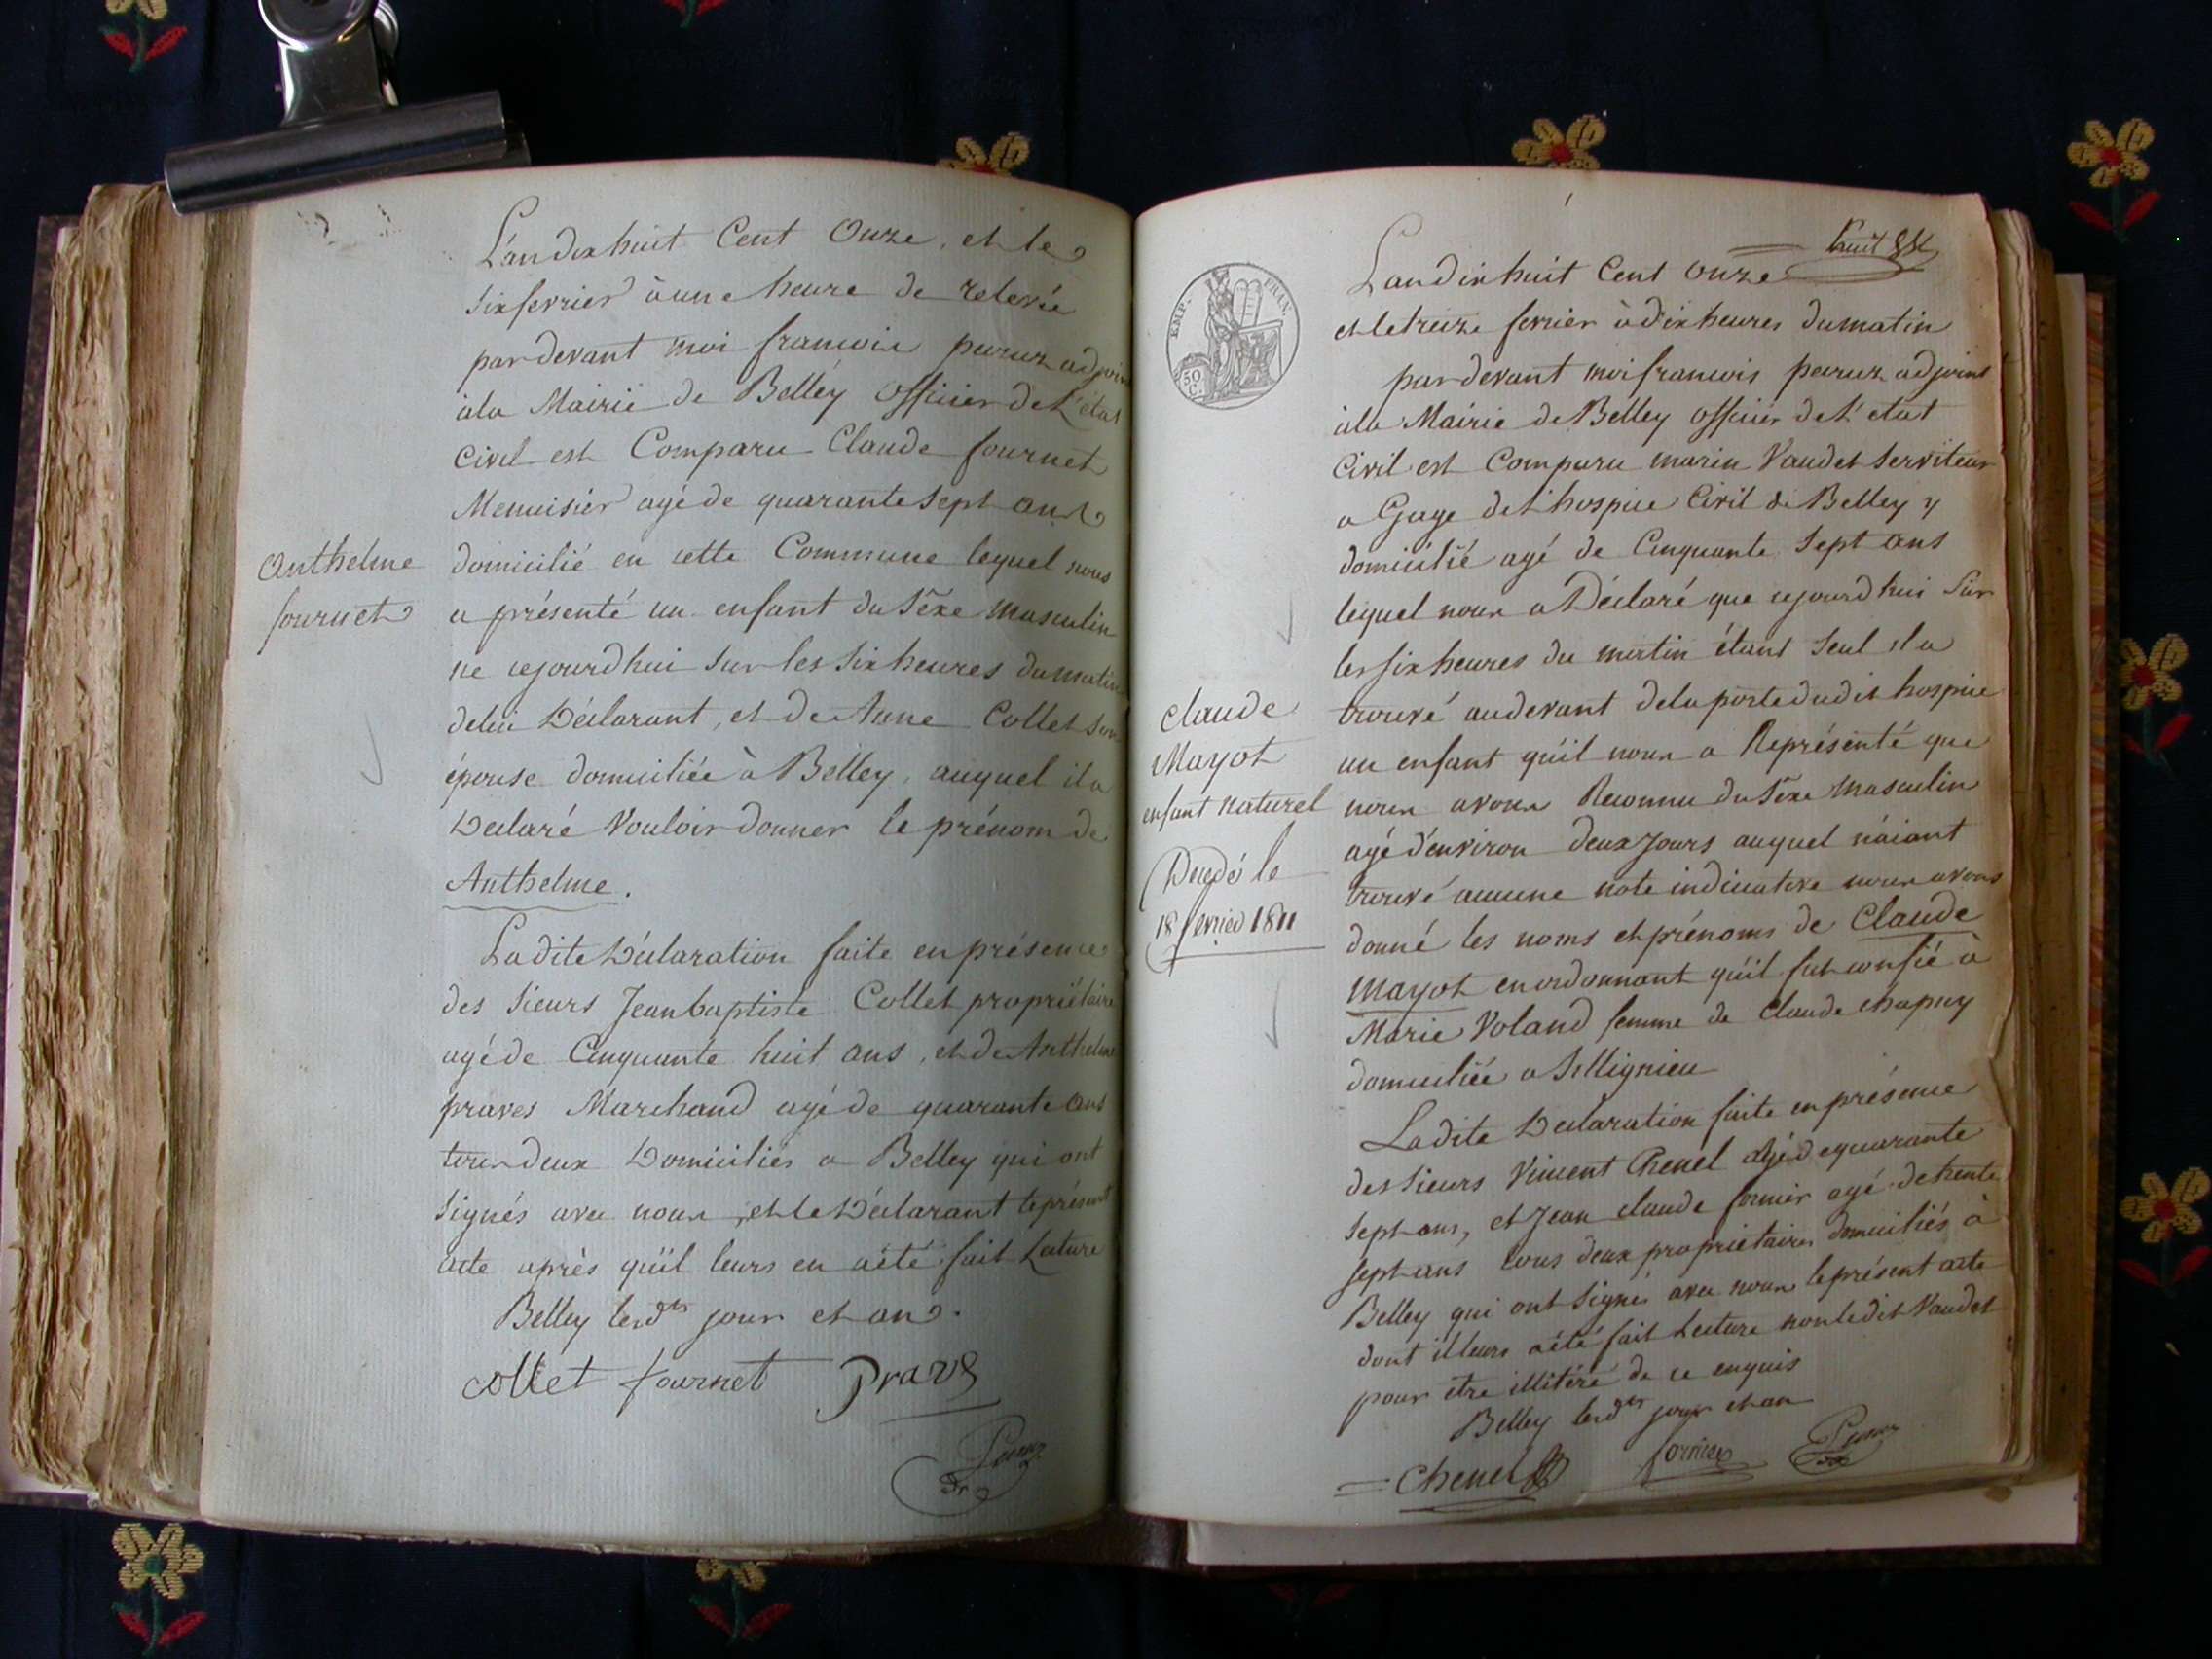 L'an dix huit Cent Onze, et le
six fevrier à une heure de relevée
pardevant moi francois peruz adjoint
à la Mairie de Belley officier de L'état
Civil est Comparu Claude fournet
Menuisier agé de quarante sept ans
Anthelme
fournet
domicilié en cette Commune lequel nous
a présenté un enfant du Sexe Masculin
né cejourdhui sur les six heures du matin
de lui Déclarant, et de Anne Collet son
épouse domiciliée à Belley, auquel il a
Déclaré Vouloir donner le prénom de
Anthelme.
Ladite Déclaration faite en présence
des sieurs Jean baptiste Collet propriétaire
agé de Cinquante huit ans, et de Anthelme
praves Marchand agé de quarante ans
tous deux Domiciliés a Belley qui ont
signés avec nous, et le Déclarant le présent
acte après qu'il leurs en aété fait Lecture
Belley lesd.ts jour et an.
collet fournet prave
EMP. FRAN.
50 C.
L'an dix huit Cent Onze
et le treize fevrier à dix heures du matin
pardevant moi francois peruz adjoint
à la Mairie de Belley officier de L'etat
Civil est Comparu marin Vaudet serviteur
a Gage de L'hospice Civil de Belley y
domicilié agé de Cinquante sept ans
lequel nous a Déclaré que cejourdhui sur
les six heures du matin étant seul il a
Claude
Mayot
enfant naturel
Decedé le
18 fevrier 1811
trouvé audevant de la porte dudit hospice
un enfant qu'il nous a Représenté que
nous avons Reconnu du Sexe Masculin
agé d'environ deux jours auquel n'aiant
trouvé aucune note indicative nous avons
donné les noms et prénoms de Claude
Mayot en ordonnant qu'il fut confié à
Marie Voland femme de Claude Chapuy
domiciliée a Sillignieu
Ladite Declaration faite en présence
des sieurs Vincent Chenel agé de quarante
sept ans, et Jean claude fornier agé de trente
sept ans tous deux propriétaires domiciliés à
Belley qui ont signés avec nous le présent acte
dont il leurs aété fait Lecture non ledit Vaudet
pour etre illitéré de ce enquis
Belley lesd.ts jour et an
Chenel fornier